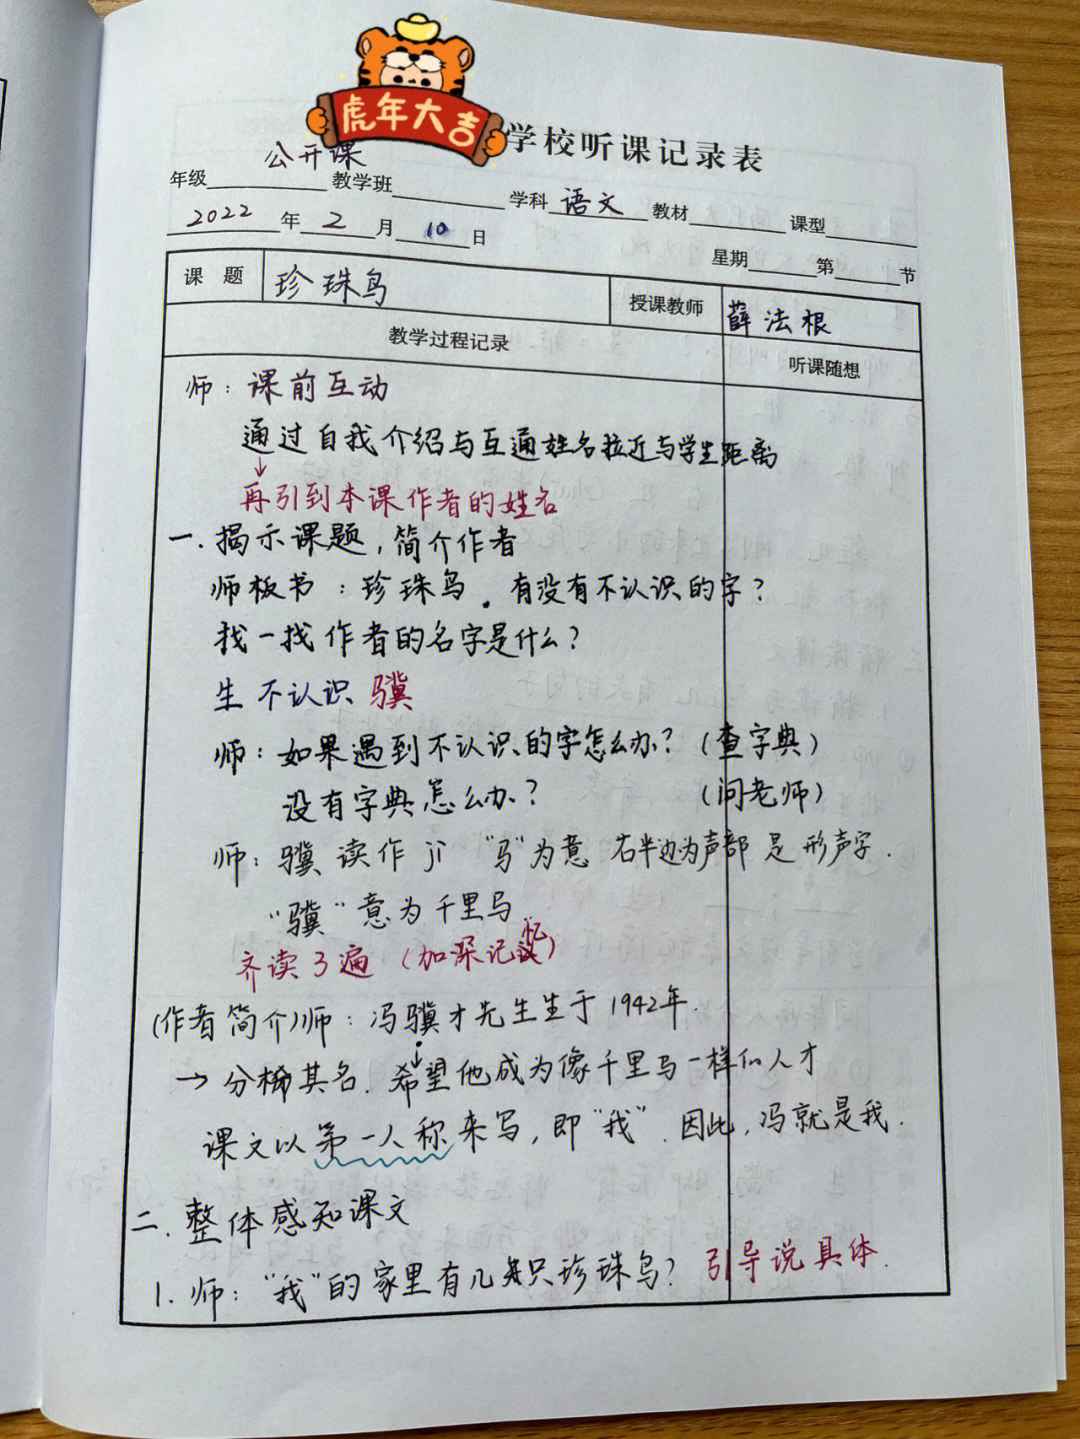 虎年大吉
学校听课记录表
公开课
年级 教学班 学科 语文 教材 课型
2022 年 2 月 10 日 星期 第 节
课 题 珍珠鸟 授课教师 薛法根
教学过程记录 听课随想
师：课前互动
通过自我介绍与互通姓名拉近与学生距离
↓
再引到本课作者的姓名
一.揭示课题,简介作者
师板书：珍珠鸟。有没有不认识的字?
找一找作者的名字是什么?
生 不认识 骥
师：如果遇到不认识的字怎么办?(查字典)
没有字典怎么办? (问老师)
师：骥 读作 jì "马"为意 右半边为声部 是 形声字.
"骥"意为千里马
齐读3遍 (加深记忆)
(作者简介)师：冯骥才先生生于1942年.
→分析其名.希望他成为像千里马一样的人才
课文以第一人称来写,即"我".因此,冯就是我.
二.整体感知课文
1.师："我"的家里有几只珍珠鸟? 引导说具体.